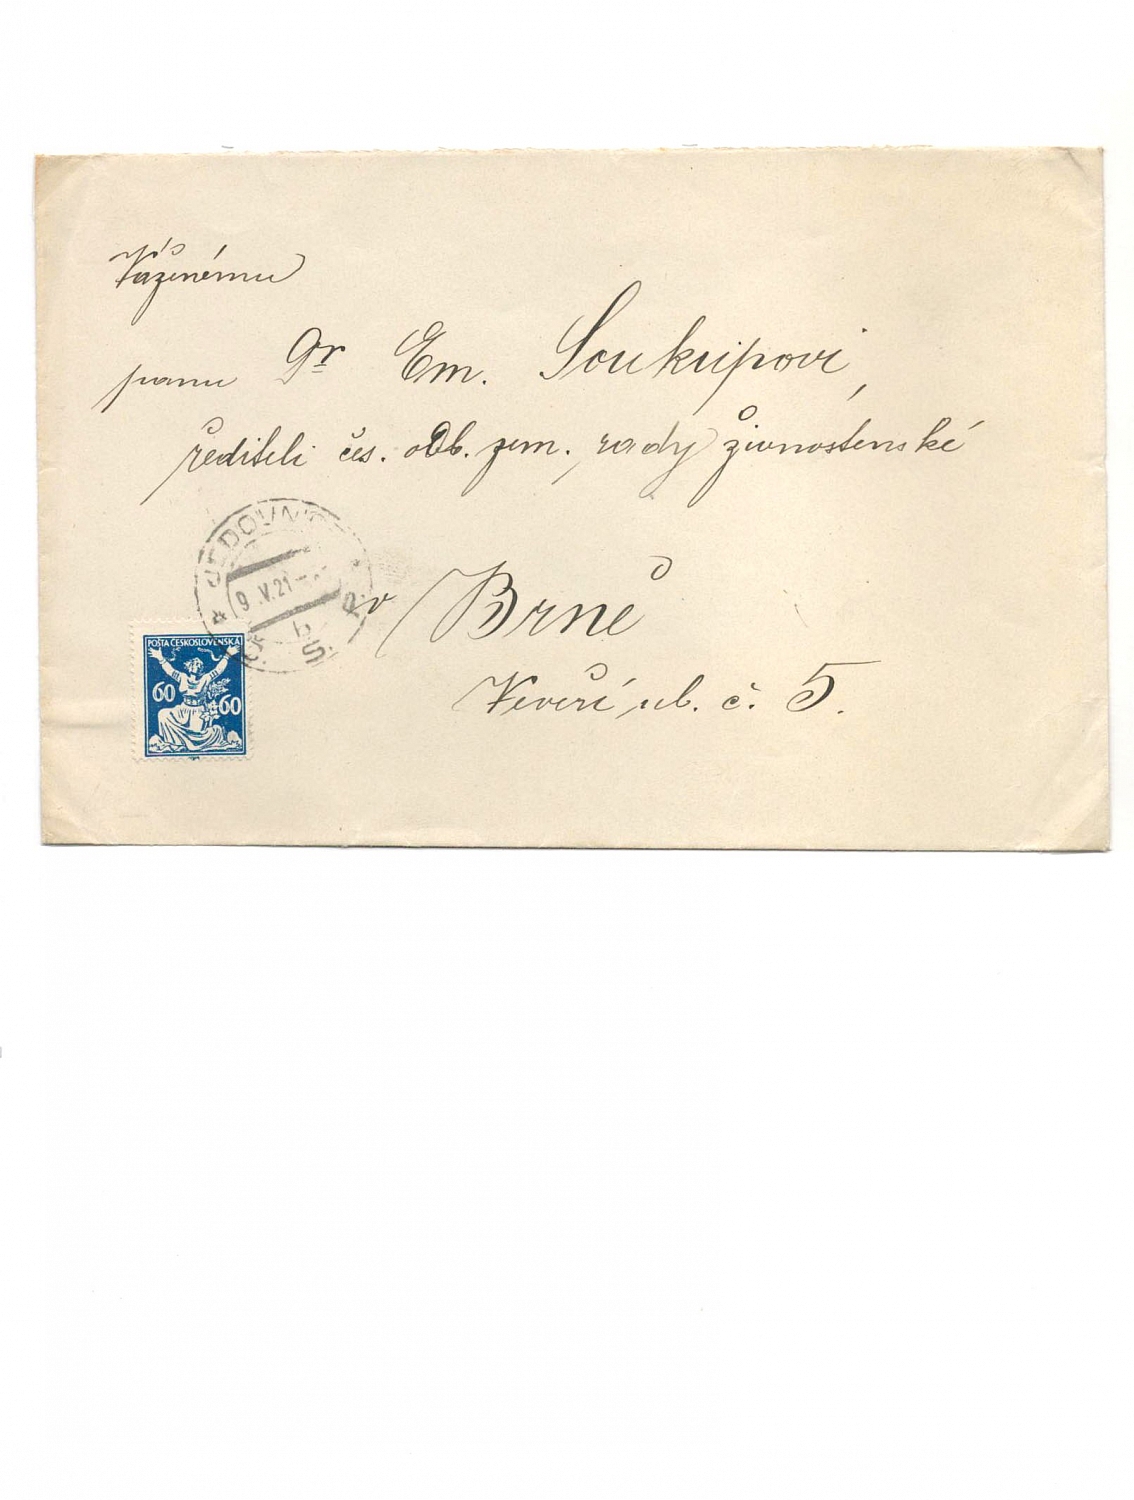 Váženému
panu Dr Em. Soukupovi,
řediteli čes. odb. zem. rady živnostenské
v Brně
Veveří ul. č. 5.
9.V.21
b
Č.S.R.
POŠTA ČESKOSLOVENSKÁ
60
60